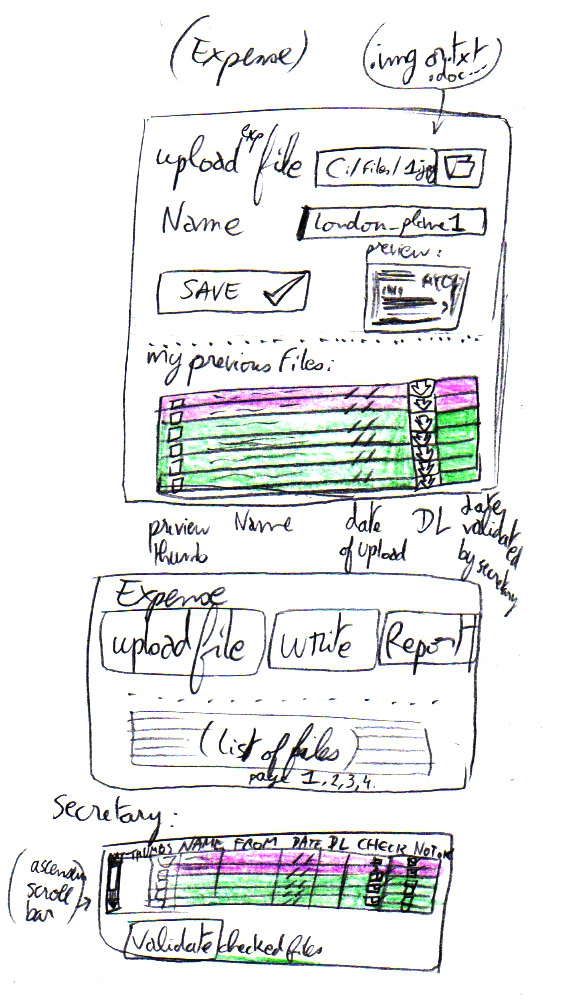 (Expense)
(.img or .txt
.doc...)
upload exp file
C:/files/1jpg
Name
london_plane1
preview:
SAVE
my previous files:
preview thumb
Name
date of upload
DL
date validated by secretary
Expense
upload file
write
Report
(list of files)
page 1,2,3,4.
Secretary:
THUMBS NAME FROM DATE DL CHECK NOT OK
(ascending scroll bar)
Validate checked files